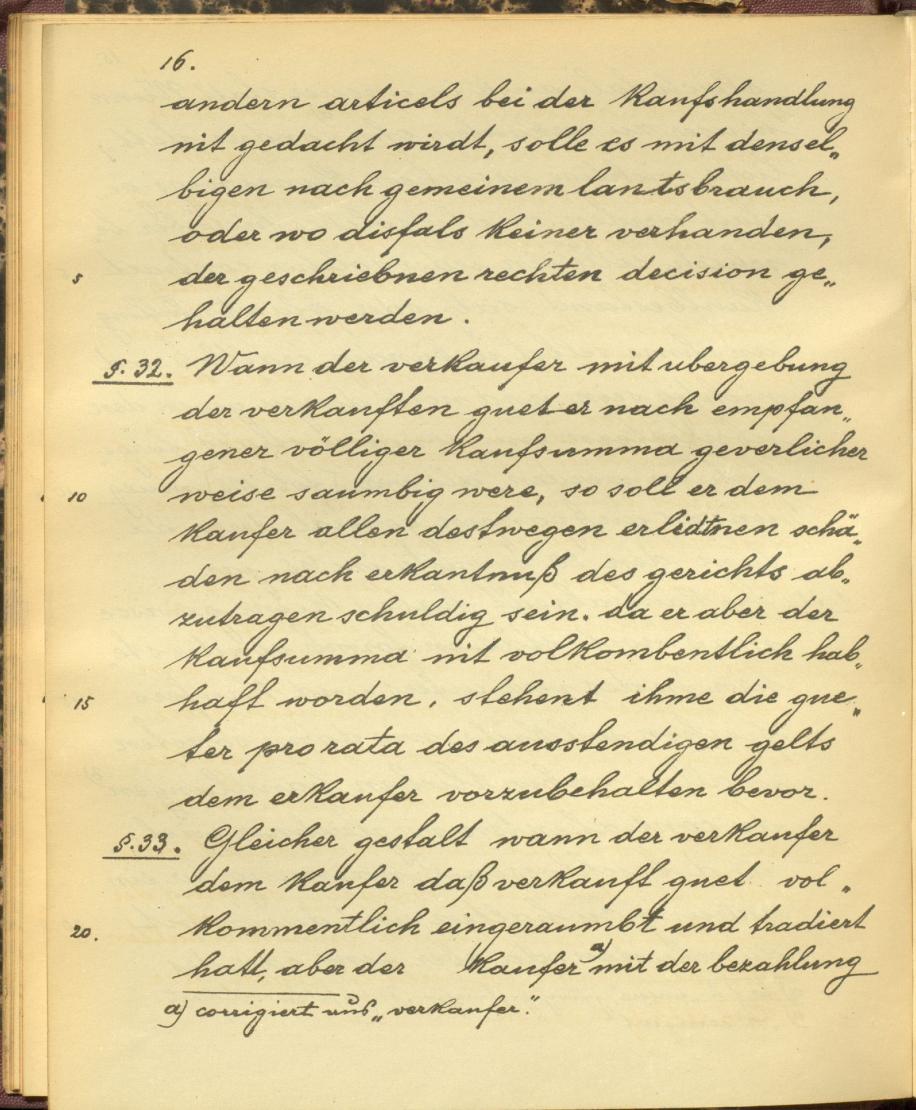 16.
andern articels bei der Kaufshandlung
nit gedacht wirdt, solle es mit densel„
bigen nach gemeinem lantsbrauch,
oder wo disfals keiner verhanden,
5 der geschriebnen rechten decision ge„
halten werden.
§. 32. Wann der verkaufer mit ubergebung
der verkauften gueter nach empfan„
gener völliger kaufsumma geverlicher
10 weise saumbig were, so soll er dem
kaufer allen destwegen erlidtnen schä„
den nach erkantnuß des gerichts ab„
zutragen schuldig sein. da er aber der
kaufsumma nit volkombentlich hab„
15 haft worden, stehent ihme die gue„
ter pro rata des ausstendigen gelts
dem erkaufer vorzubehalten bevor.
§. 33. Gleicher gestalt wann der verkaufer
dem kaufer daß verkauft guet vol„
20. kommentlich eingeraumbt und tradiert
hatt, aber der kaufer a) mit der bezahlung
a) corrigiert aus „verkaufer".